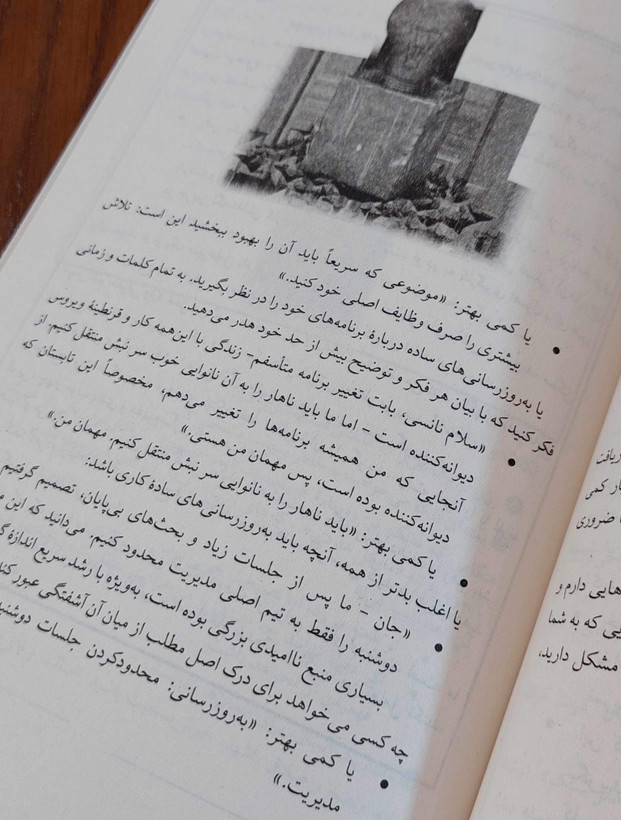 یا کمی بهتر: «موضوعی که سریعاً باید آن را بهبود ببخشید این است: تلاش
بیشتری را صرف وظایف اصلی خود کنید.»
یا به‌روزرسانی‌های ساده دربارهٔ برنامه‌های خود را در نظر بگیرید. به تمام کلمات و زمانی
فکر کنید که با بیان هر فکر و توضیح بیش از حد خود هدر می‌دهید.
«سلام نانسی، بابت تغییر برنامه متأسفم- زندگی با این‌همه کار و قرنطینهٔ ویروس
دیوانه‌کننده است – اما ما باید ناهار را به آن نانوایی خوب سر نبش منتقل کنیم. از
آنجایی که من همیشه برنامه‌ها را تغییر می‌دهم، مخصوصاً این تابستان که
دیوانه‌کننده بوده است، پس مهمان من هستی.»
یا کمی بهتر: «باید ناهار را به نانوایی سر نبش منتقل کنیم. مهمان من.»
یا اغلب بدتر از همه، آنچه باید به‌روزرسانی‌های سادهٔ کاری باشد:
«جان – ما پس از جلسات زیاد و بحث‌های بی‌پایان، تصمیم گرفتیم
دوشنبه را فقط به تیم اصلی مدیریت محدود کنیم. می‌دانید که این
بسیاری منبع ناامیدی بزرگی بوده است، به‌ویژه با رشد سریع اندازهٔ
چه کسی می‌خواهد برای درک اصل مطلب از میان آن آشفتگی عبور
یا کمی بهتر: «به‌روزرسانی: محدودکردن جلسات
مدیریت.»
کمی
ضروری
هایی دارم و
که به شما
مشکل دارید،